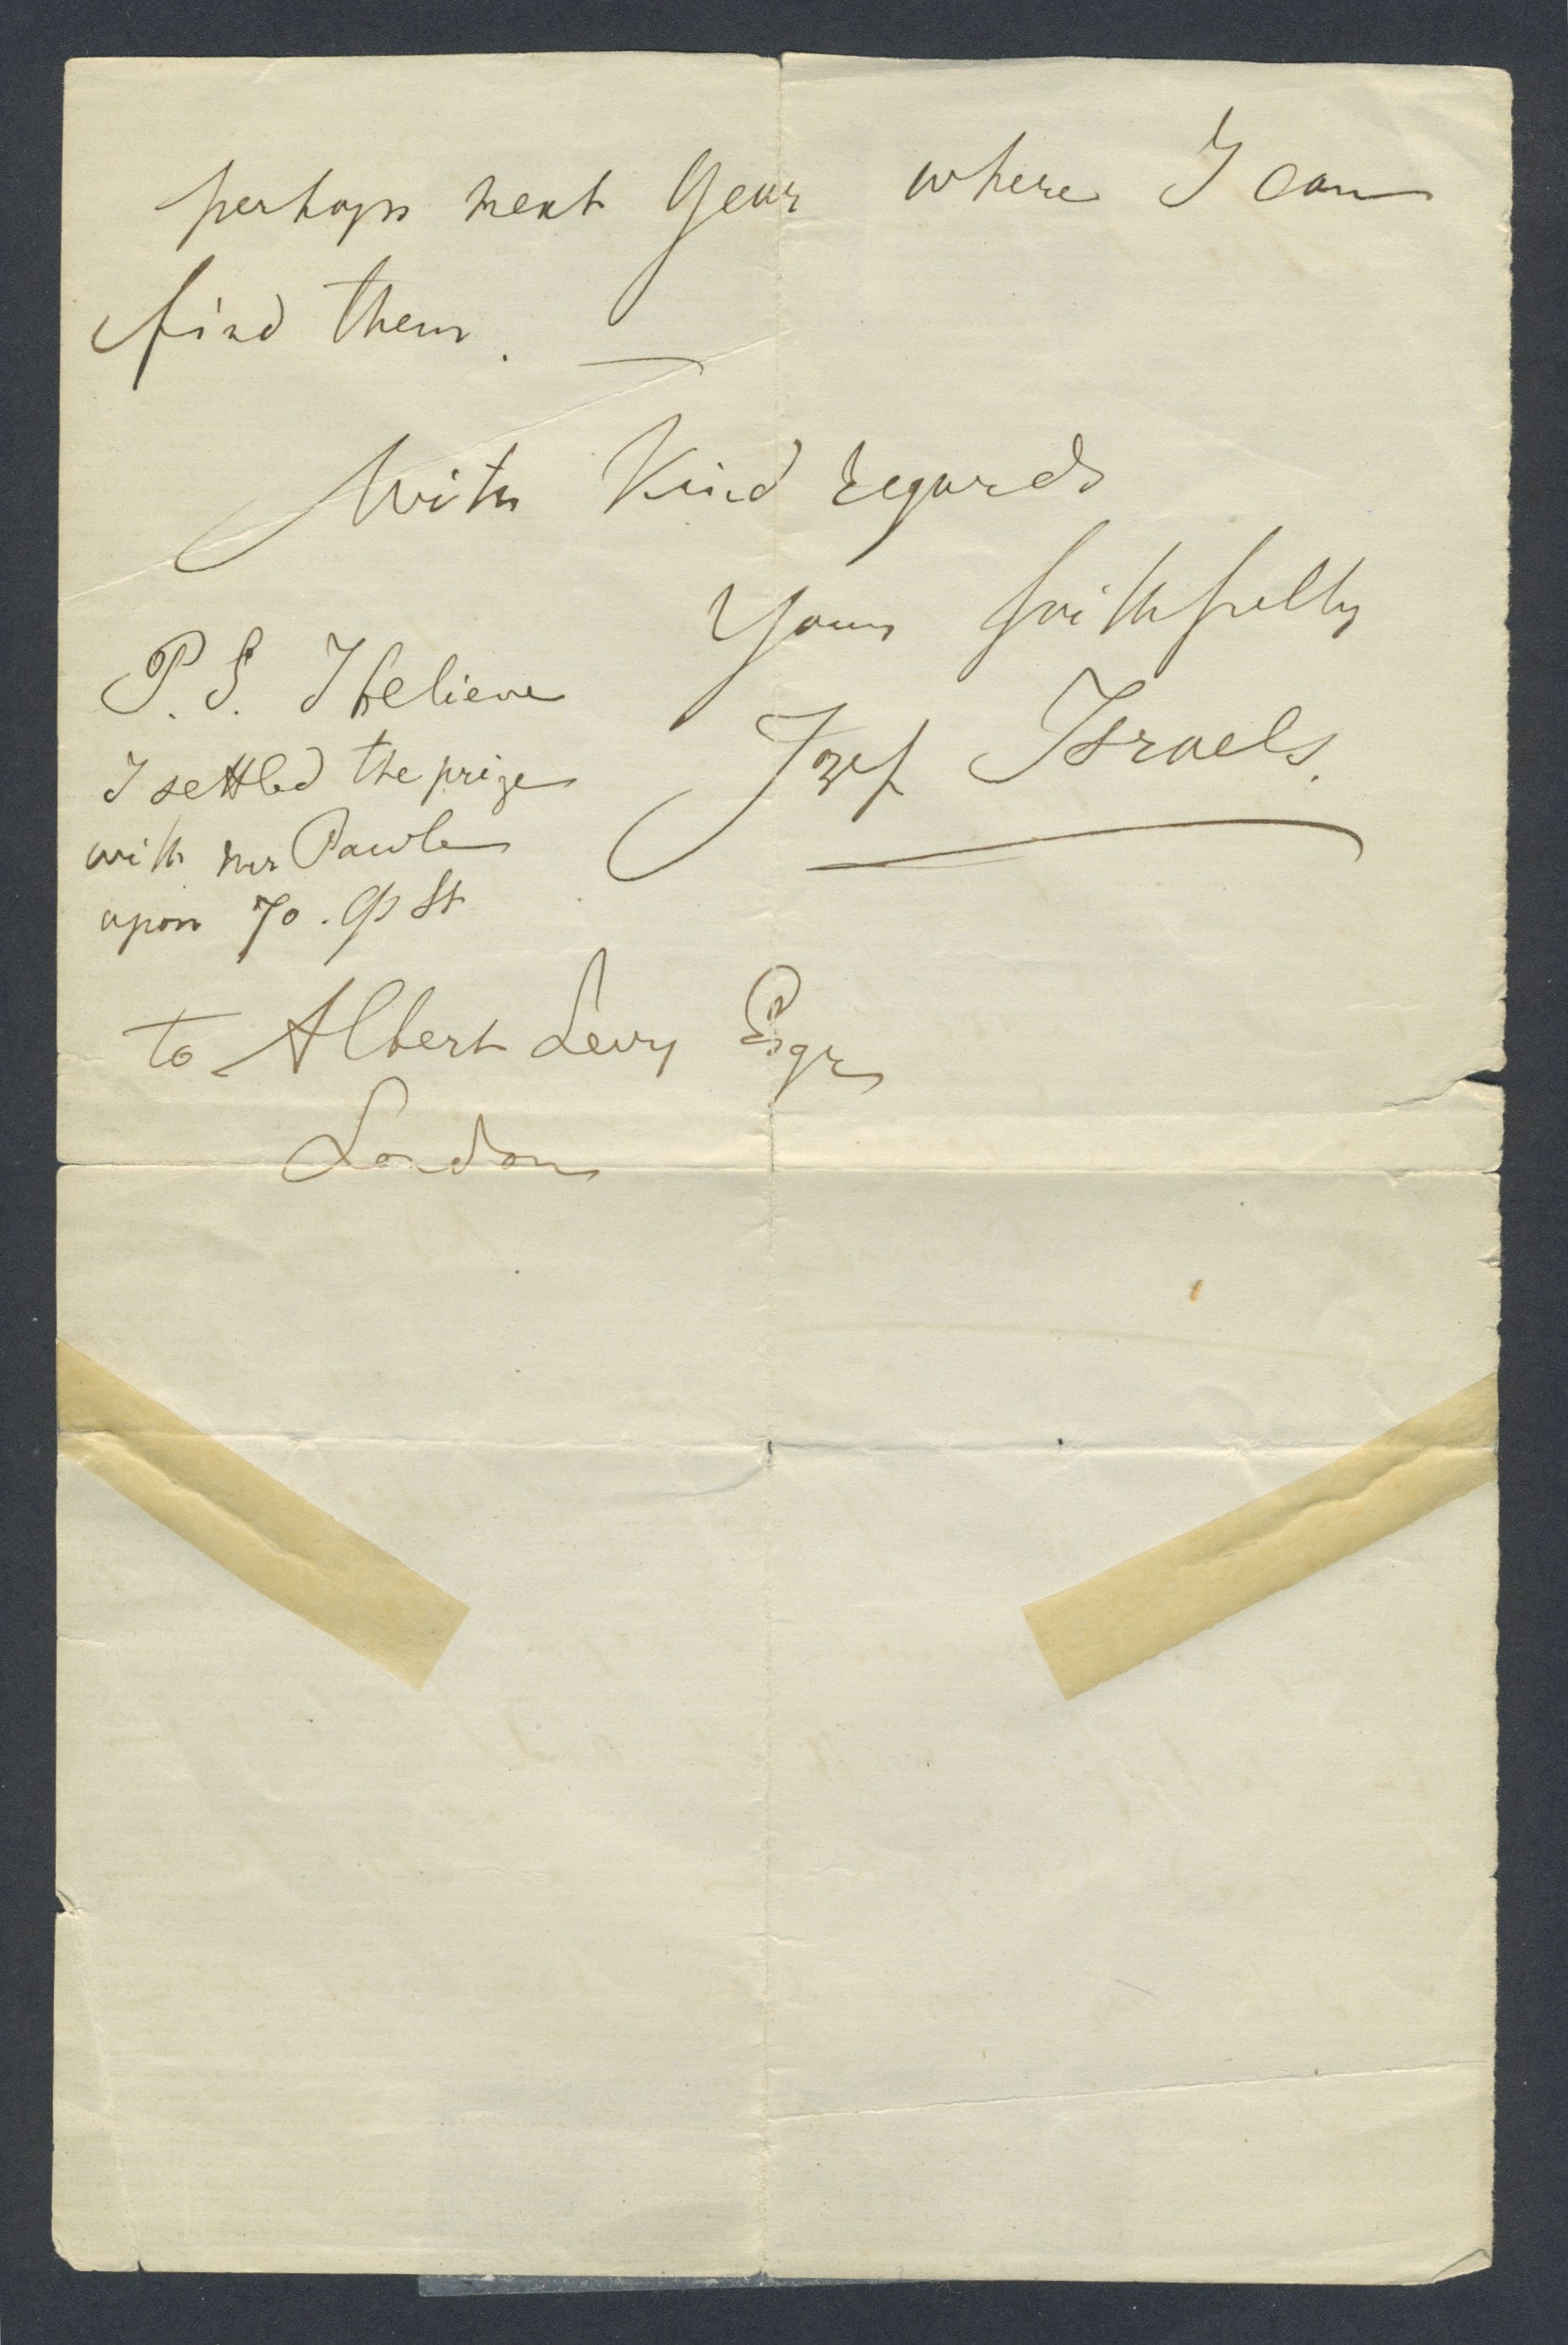 perhaps next Year where I can
find them.
With Kind regards
Yours faithfully
Jozef Israels.
P.S. I believe
I settled the prize
with mr Pawle
upon 70.
to Albert Levy Esqr
London